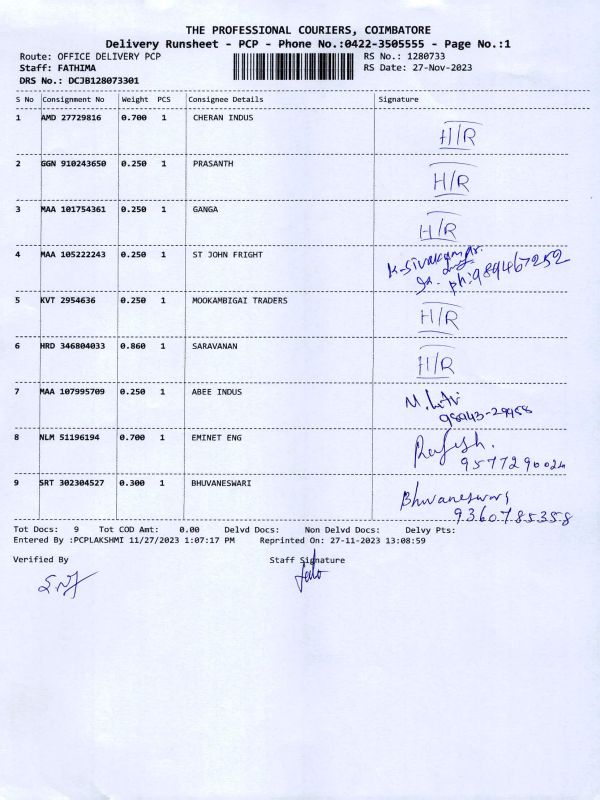 THE PROFESSIONAL COURIERS, COIMBATORE
Delivery Runsheet - PCP - Phone No.:0422-3505555 - Page No.:1
Route: OFFICE DELIVERY PCP RS No.: 1280733
Staff: FATHIMA RS Date: 27-Nov-2023
DRS No.: DCJB128073301
S No Consignment No Weight PCS Consignee Details Signature
1 AMD 27729816 0.700 1 CHERAN INDUS H/R
2 GGN 910243650 0.250 1 PRASANTH H/R
3 MAA 101754361 0.250 1 GANGA H/R
4 MAA 105222243 0.250 1 ST JOHN FRIGHT
ph:989467252
5 KVT 2954636 0.250 1 MOOKAMBIGAI TRADERS H/R
6 HRD 346804033 0.860 1 SARAVANAN H/R
7 MAA 107995709 0.250 1 ABEE INDUS M.
98943-29958
8 NLM 51196194 0.700 1 EMINET ENG Rafesh.
9577290024
9 SRT 302304527 0.300 1 BHUVANESWARI Bhuvaneswari
9360785358
Tot Docs: 9 Tot COD Amt: 0.00 Delvd Docs: Non Delvd Docs: Delvy Pts:
Entered By :PCPLAKSHMI 11/27/2023 1:07:17 PM Reprinted On: 27-11-2023 13:08:59
Verified By Staff Signature